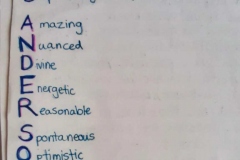 A Amazing
N Nuanced
D Divine
E Energetic
R Reasonable
S Spontaneous
O Optimistic